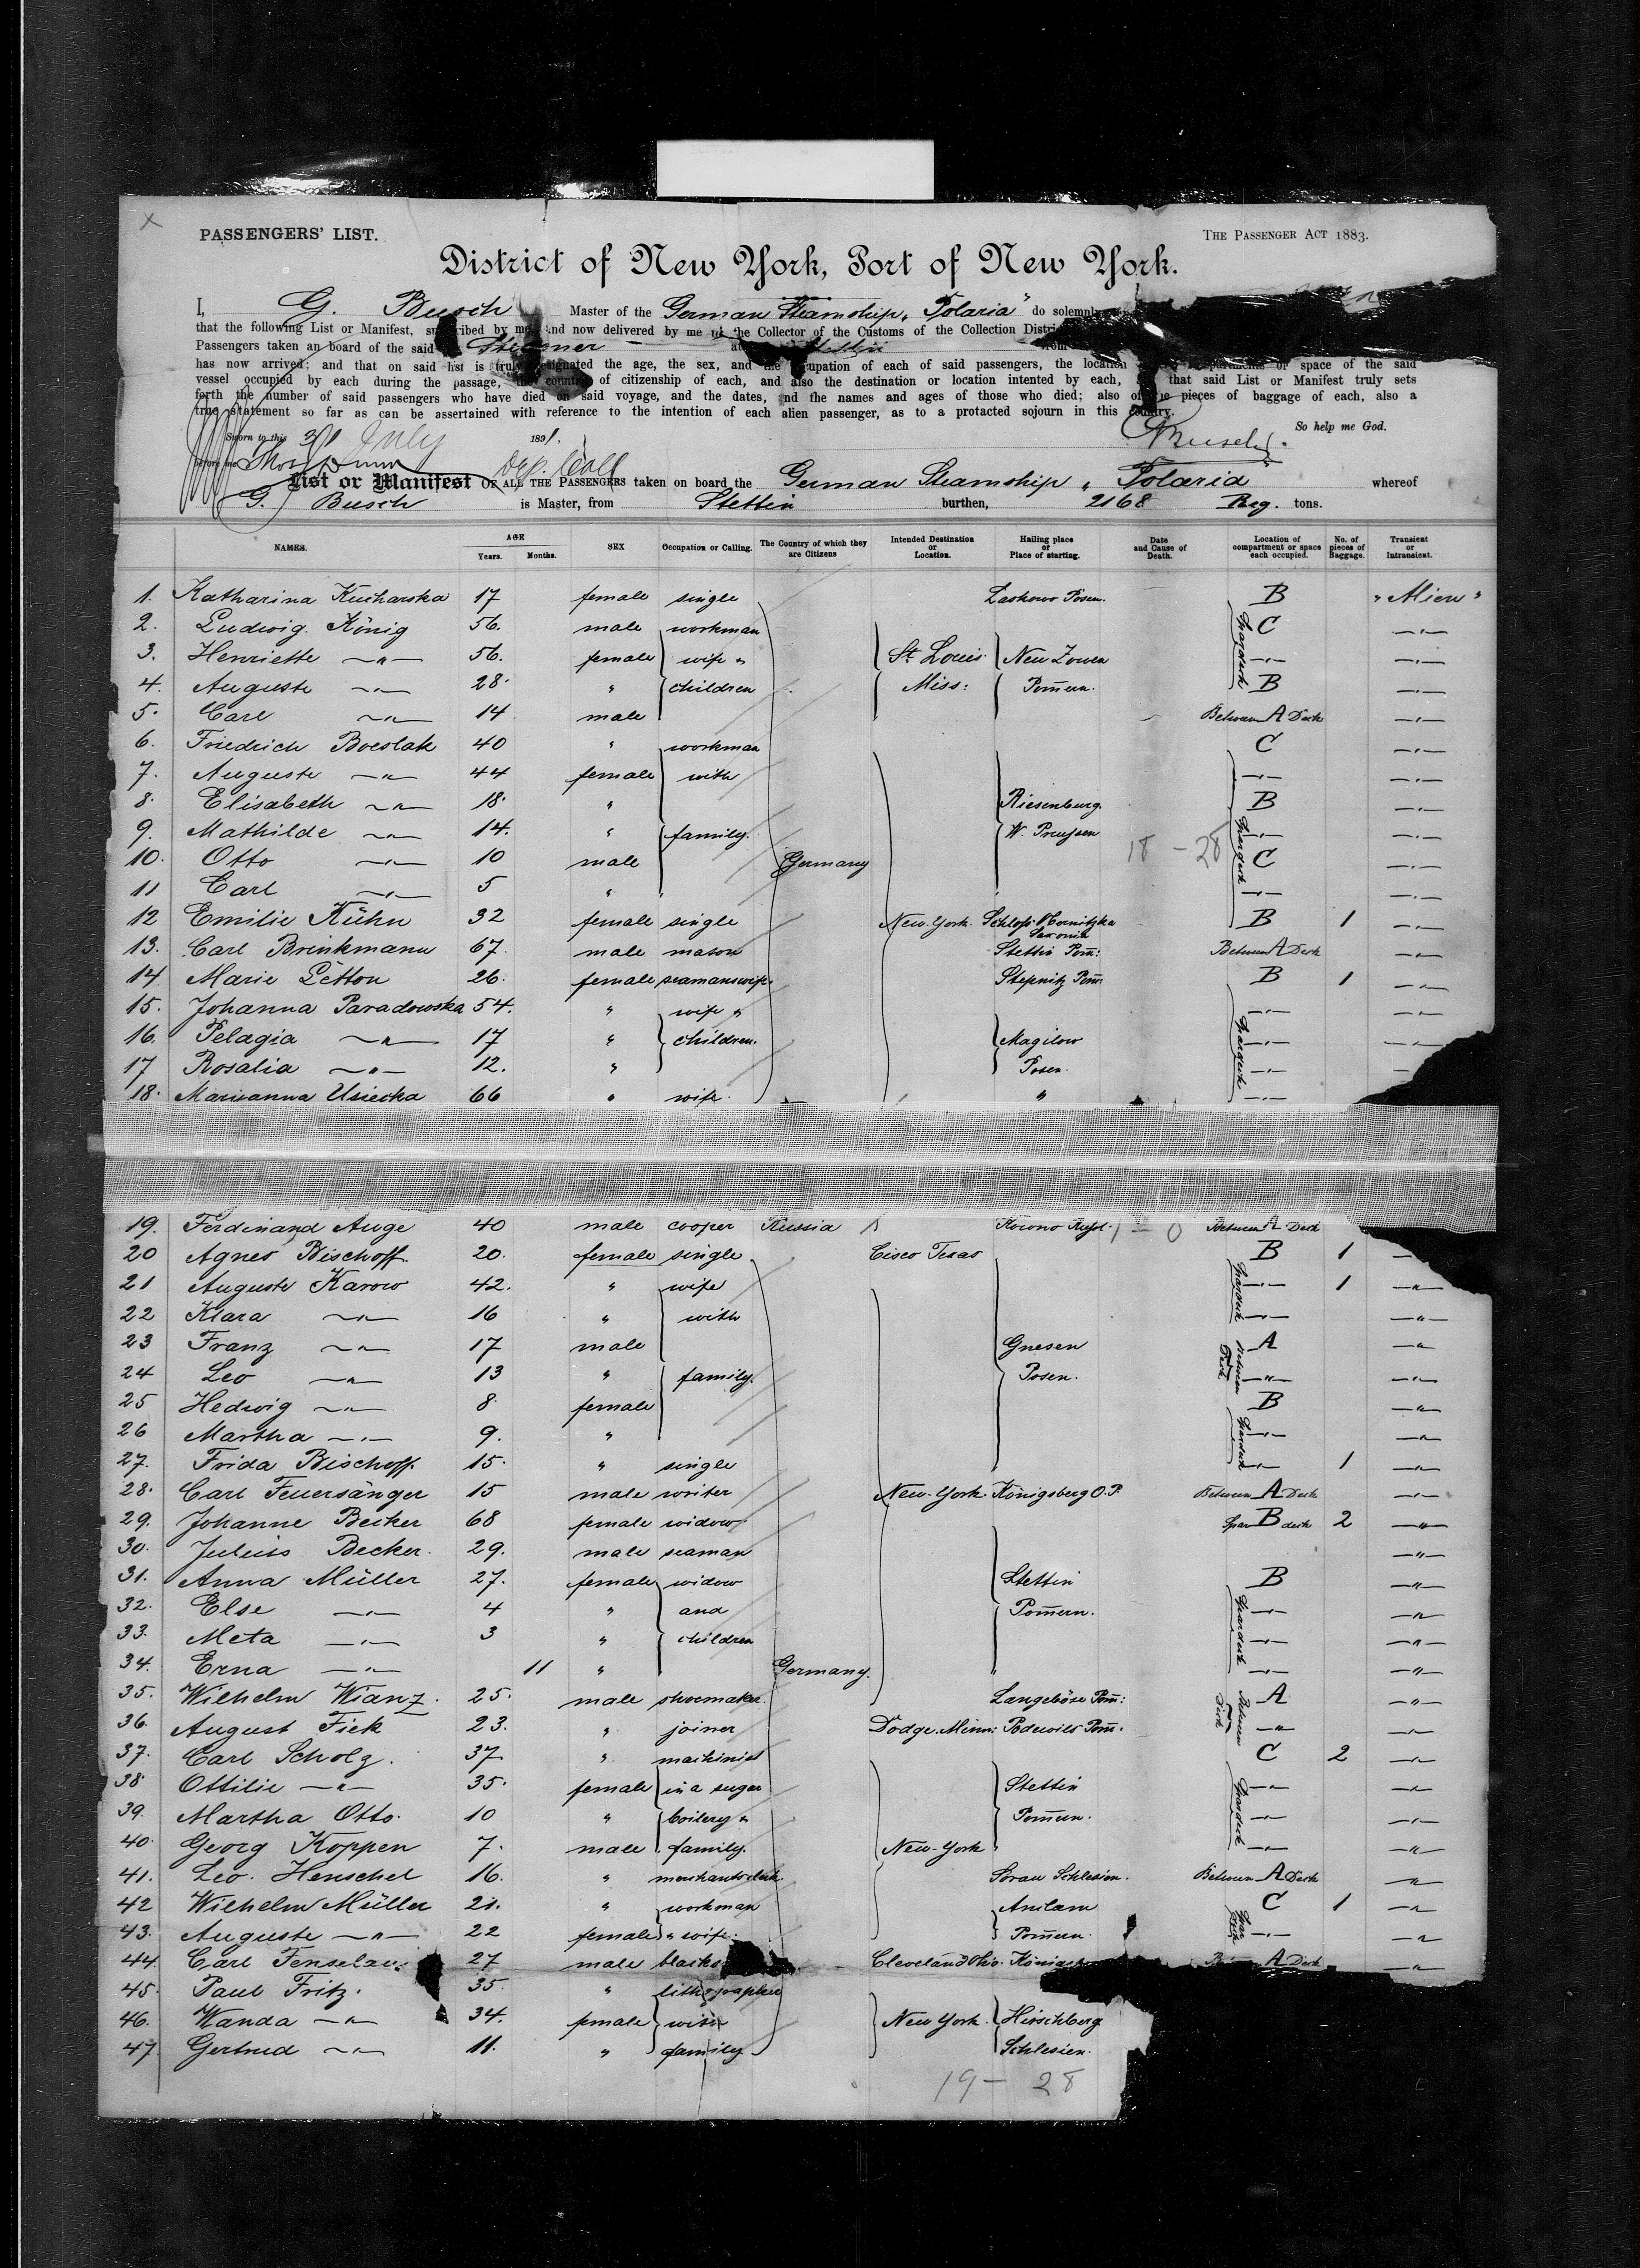 PASSENGERS' LIST.
THE PASSENGER ACT 1883.
District of New York, Port of New York.
I, G. Busch Master of the German Steamship „Polaria" do solemnly
that the following List or Manifest, subscribed by me and now delivered by me to the Collector of the Customs of the Collection
Passengers taken an board of the said Steamer at Stettin from
has now arrived; and that on said list is truly designated the age, the sex, and the occupation of each of said passengers, the location space of the said
vessel occupied by each during the passage, the country of citizenship of each, and also the destination or location intented by each, that said List or Manifest truly sets
forth the number of said passengers who have died on said voyage, and the dates, and the names and ages of those who died; also of the pieces of baggage of each, also a
true statement so far as can be assertained with reference to the intention of each alien passenger, as to a protacted sojourn in this country.
So help me God.
Sworn to this July 1891.
G Busch.
before me
List or Manifest OF ALL THE PASSENGERS taken on board the German Steamship „Polaria" whereof
G. Busch is Master, from Stettin burthen, 2168 Reg. tons.
NAMES. AGE Years. Months. SEX Occupation or Calling. The Country of which they are Citizens Intended Destination or Location. Hailing place or Place of starting. Date and Cause of Death. Location of compartment or space each occupied. No. of pieces of Baggage. Transient or Intransient.
1. Katharina Kucharska 17 female single Laskowo Posen. B "Alien"
2. Ludwig König 56. male workman C —"—
3. Henriette —"— 56. female wife " St. Louis New Zowen —"— —"—
4. Auguste —"— 28. " children Miss: Pom̄ern. B —"—
5. Carl —"— 14 male Between A Deck —"—
6. Friedrich Bocolak 40 " workman C —"—
7. Auguste —"— 44 female with —"— —"—
8. Elisabeth —"— 18. " Riesenburg. B —"—
9. Mathilde —"— 14. " family. W. Preussen —"— —"—
18 - 28
10. Otto —"— 10 male Germany C —"—
11 Carl —"— 5 " —"— —"—
12 Emilie Kühn 32 female single New-York. Schloss Saxonia B 1 —"—
13. Carl Brinkmann 67. male mason Stettin Pom̄: Between A Deck —"—
14 Marie Letton 26. female seamanswife. Stepnitz Pom̄: B 1 —"—
15. Johanna Paradowska 54. " wife " —"— —"—
16. Pelagia —"— 17 " children. Magilow —"— —"—
17 Rosalia —"— 12. " Posen. —"—
18. Marianna Usiecka 66 " wife. " —"—
19. Ferdinand Auge 40 male cooper Russia Kowno Between A Deck
20 Agnes Bischoff. 20. female single Cisco Texas B 1 —
21 Auguste Karow 42. " wife —"— 1 —"—
22 Klara —"— 16 " with —"— —"—
23 Franz —"— 17 male Gnesen A —"—
24 Leo —"— 13 " family. Posen. —"— —"—
25 Hedwig —"— 8. female B —"—
26 Martha —"— 9. " —"— —"—
27. Frida Bischoff. 15. " single —"— 1 —"—
28. Carl Feuersänger 15 male writer New-York. Königsberg O.P. Between A Deck —"—
29. Johanne Becker 68 female widow Spar B deck 2 —"—
30. Julius Becker. 29. male seaman —"—
31. Anna Müller 27. female widow Stettin B —"—
32. Else —"— 4 " and Pom̄ern. —"— —"—
33. Meta —"— 3 " children —"— —"—
34. Erna —"— 11 " Germany. " —"— —"—
35. Wilhelm Wianz. 25. male shoemaker. Langeböse Pom̄: A —"—
36. August Fick 23. " joiner Dodge. Minn: Podewils Pom̄. —"— —"—
37. Carl Scholz. 37. " machinist C 2 —"—
38. Ottilie —"— 35. female in a sugar Stettin —"— —"—
39. Martha Otto. 10 " boilery " Pom̄ern. —"— —"—
40. Georg Koppen 7. male family. New-York —"— —"—
41. Leo. Henschel 16. " merchantsclerk. Sorau Schlesien. Between A Deck —"—
42 Wilhelm Müller 21. " workman Anclam C 1 —"—
43. Auguste —"— 22 female " wife. Pom̄ern. —"— —"—
44. Carl Fenselau. 27 male Cleveland Ohio. A Deck —"—
45. Paul Fritz. 35. " lithographer
46. Wanda —"— 34. female with New York. Hirschberg
47 Gertrud —"— 11. " family. Schlesien.
19 - 28